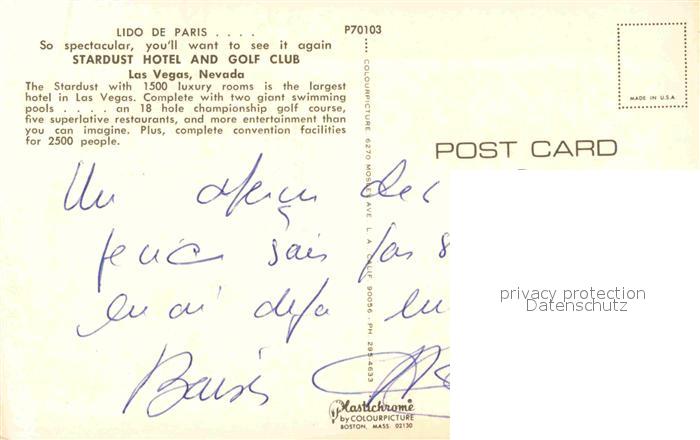 LIDO DE PARIS . . . .
So spectacular, you'll want to see it again
STARDUST HOTEL AND GOLF CLUB
Las Vegas, Nevada
The Stardust with 1500 luxury rooms is the largest
hotel in Las Vegas. Complete with two giant swimming
pools . . . . an 18 hole championship golf course,
five superlative restaurants, and more entertainment than
you can imagine. Plus, complete convention facilities
for 2500 people.
P70103
COLOURPICTURE 6270 MOSLEY AVE L. A. CALIF 90056 - PH 295-4633
MADE IN U.S.A
POST CARD
Un aperçu des
je ne sais pas s
en ai déjà eu
Baisers
privacy protection
Datenschutz
Plastichrome
by COLOURPICTURE
BOSTON, MASS. 02130